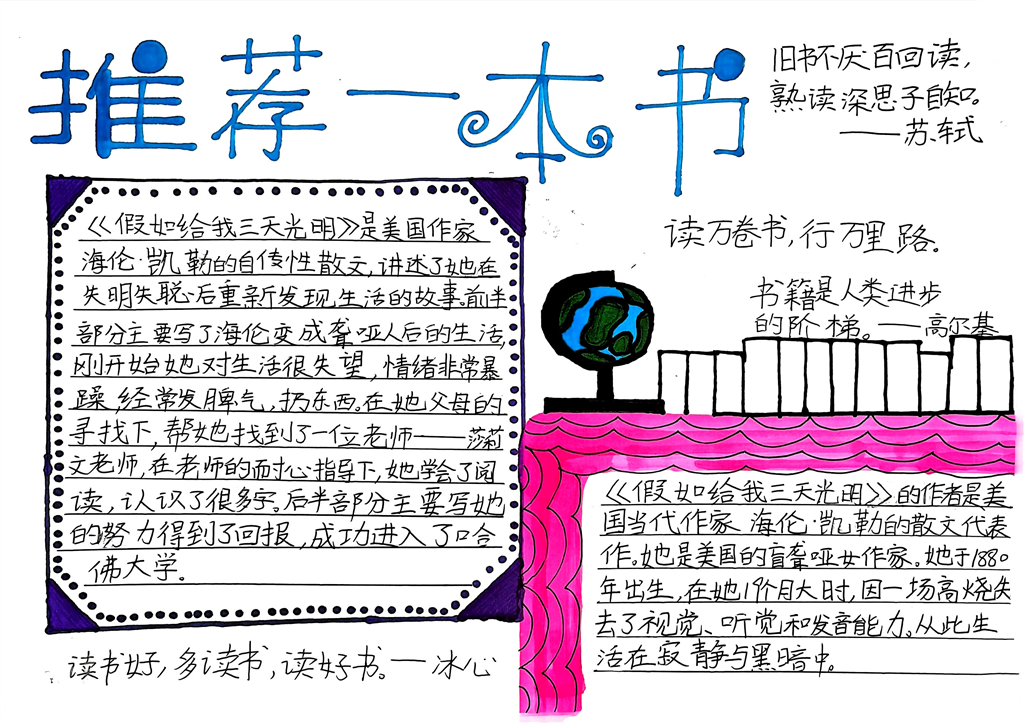 推荐一本书
旧书不厌百回读，
熟读深思子自知。
——苏轼
《假如给我三天光明》是美国作家
海伦·凯勒的自传性散文，讲述了她在
失明失聪后重新发现生活的故事前半
部分主要写了海伦变成聋哑人后的生活，
刚开始她对生活很失望，情绪非常暴
躁，经常发脾气，扔东西。在她父母的
寻找下，帮她找到了一位老师——莎莉
文老师，在老师的耐心指导下，她学会了阅
读，认识了很多字。后半部分主要写她
的努力得到了回报，成功进入了哈
佛大学。
读书好，多读书，读好书。—冰心
读万卷书，行万里路。
书籍是人类进步
的阶梯。——高尔基
《假如给我三天光明》的作者是美
国当代作家 海伦·凯勒的散文代表
作。她是美国的盲聋哑女作家。她于1880
年出生，在她1个月大时，因一场高烧失
去了视觉、听觉和发音能力。从此生
活在寂静与黑暗中。